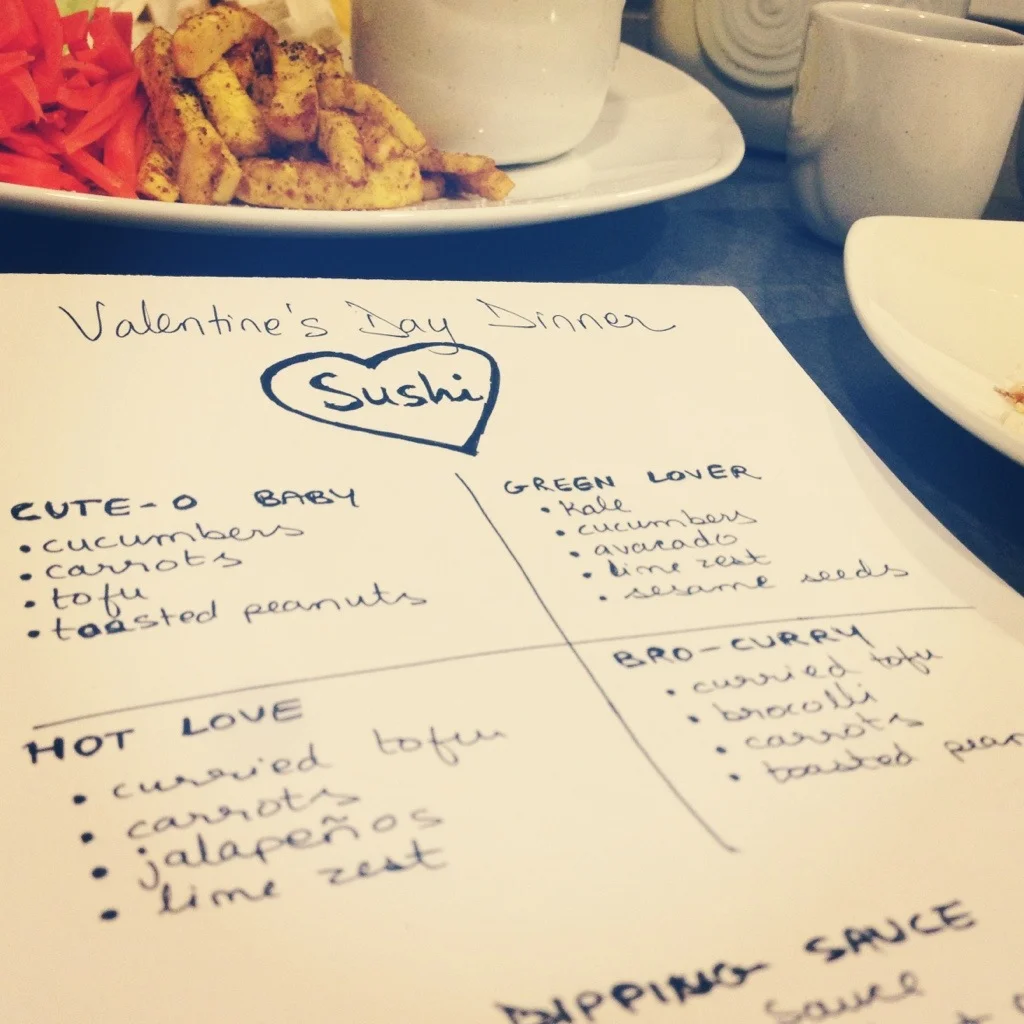 Valentine's Day Dinner
Sushi
CUTE-O BABY
• cucumbers
• carrots
• tofu
• toasted peanuts
GREEN LOVER
• kale
• cucumbers
• avacado
• lime zest
• sesame seeds
HOT LOVE
• curried tofu
• carrots
• jalapeños
• lime zest
BRO-CURRY
• curried tofu
• brocolli
• carrots
• toasted pean
DIPPING SAUCE
sauce